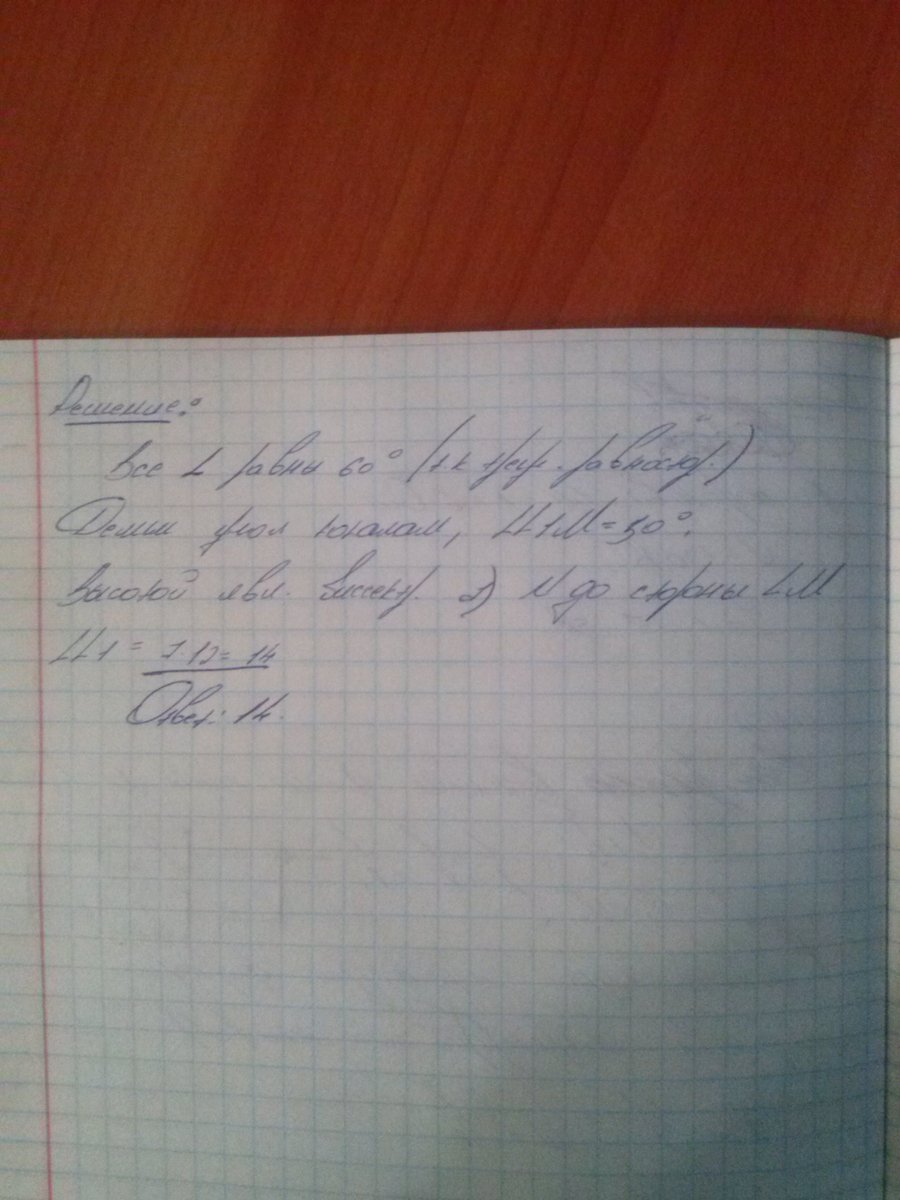 Решение:
Все ∠ равны 60° (т.к треуг. равностор.)
Делим угол пополам, = 30°.
Высотой явл. биссектр. 2) N до стороны LM
= 7·12= 14
Ответ: 14.